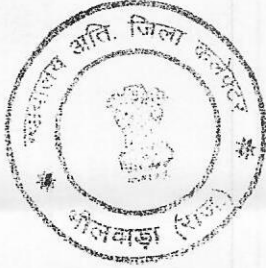 न्यायालय अति. जिला कलेक्टर
भीलवाड़ा (राज.)